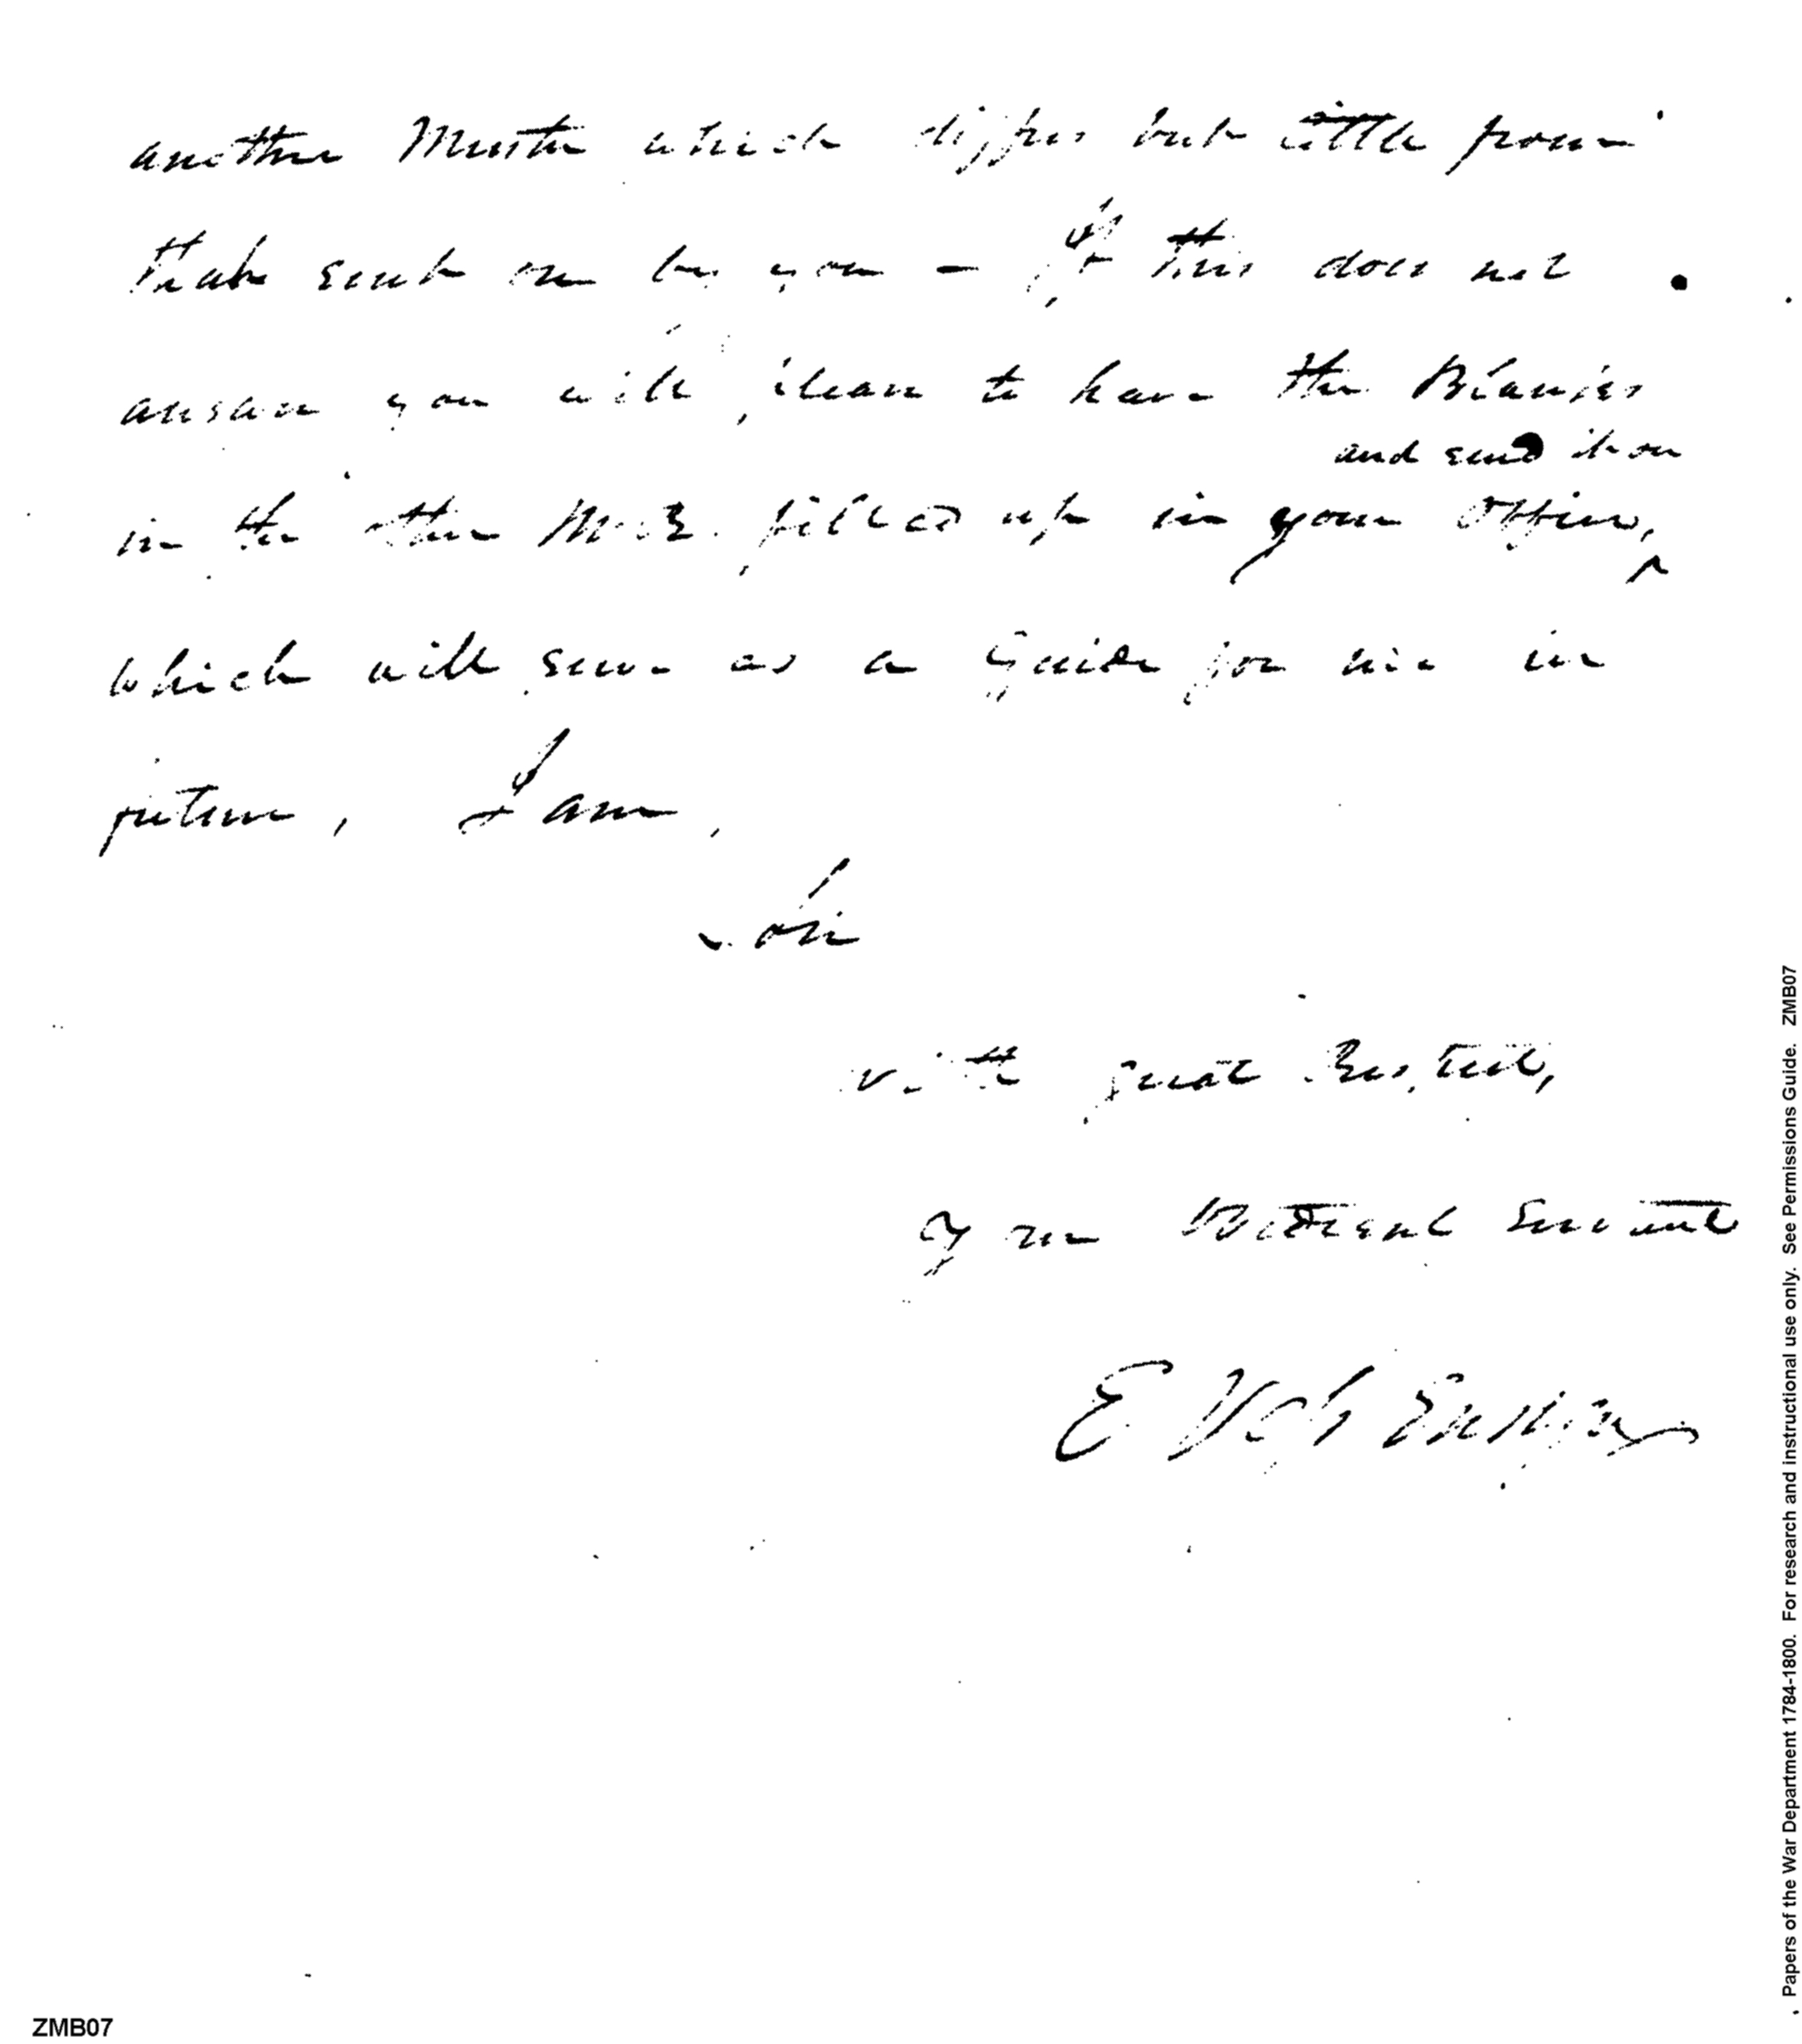 another Muster which differs but little from
that sent on by you — If this does not
answer you will please to have the Blanks
and send it on
in the other M. R. filled up in your Office,
which will serve as a Guide for me in
future, I am,
Sir
with great Respect,
Your Obedient Servant
E
Papers of the War Department 1784-1800. For research and instructional use only. See Permissions Guide. ZMB07
ZMB07